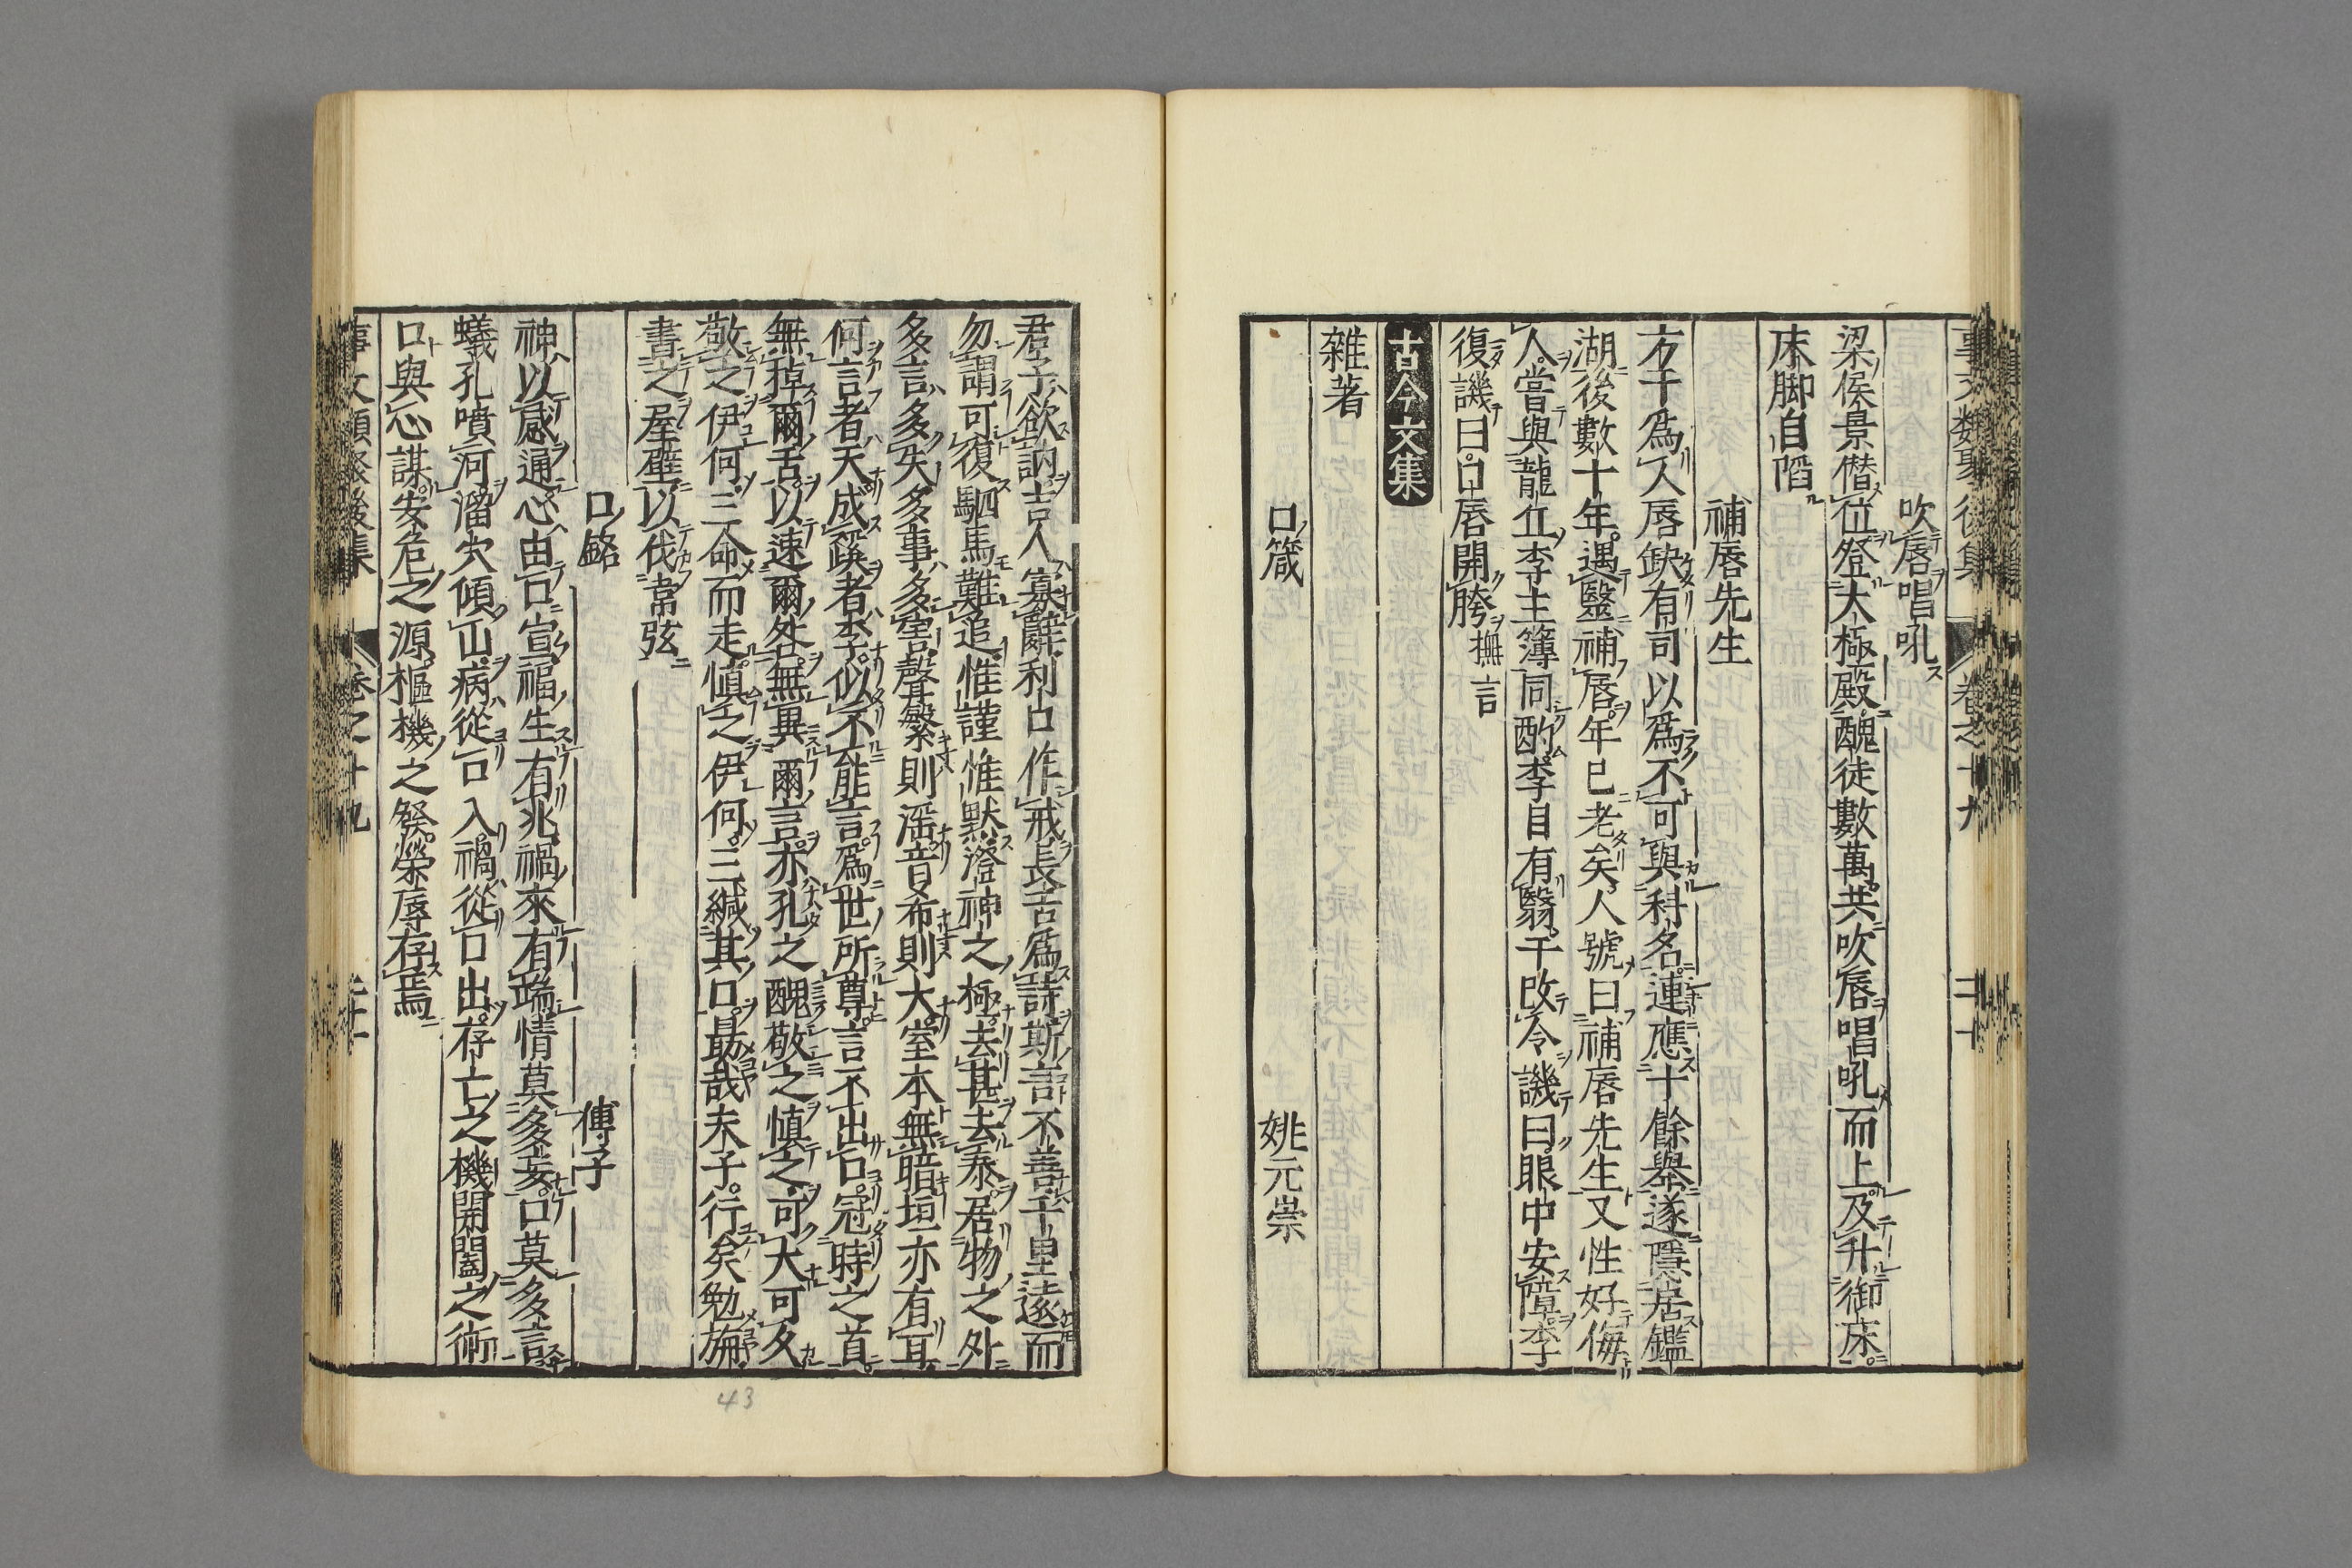 事文類聚後集 卷之十九 二十
吹唇唱吼
梁侯景僭位登太極殿醜徒數萬共吹唇唱吼而上及升御床
床脚自陷
補唇先生
方干爲人唇缺有司以爲不可與科名連應十餘舉遂隱居鑑
湖後數十年遇醫補唇年已老矣人號曰補唇先生又性好侮
人嘗與龍丘李主簿同酌李目有翳干改令譏曰眼中安障李
復譏曰口唇開胯 摭言
古今文集
雜著
口箴 姚元崇
君子欲訥吉人寡辭利口作戒長舌爲詩斯言不善千里遠而
勿謂可復駟馬難追惟謹惟默澄神之極去甚去泰居物之外
多言多失多事多害聲繁則滛音布則大室本無暗垣亦有耳
何言者天成蹊者李似不能言爲世所尊言不出口冠時之首
無掉爾舌以速爾咎無異爾言亦孔之醜敬之愼之可大可久
敬之伊何三命而走愼之伊何三緘其口勗哉夫子行矣勉旃
書之屋壁以伐韋弦
口銘 傅子
神以感通心由口宣福生有兆禍來有端情莫多妄口莫多言
蟻孔噴河溜穴傾山病從口入禍從口出存亡之機開闔之術
口與心謀安危之源樞機之發榮辱存焉
事文類聚後集 卷之十九 二十一
43